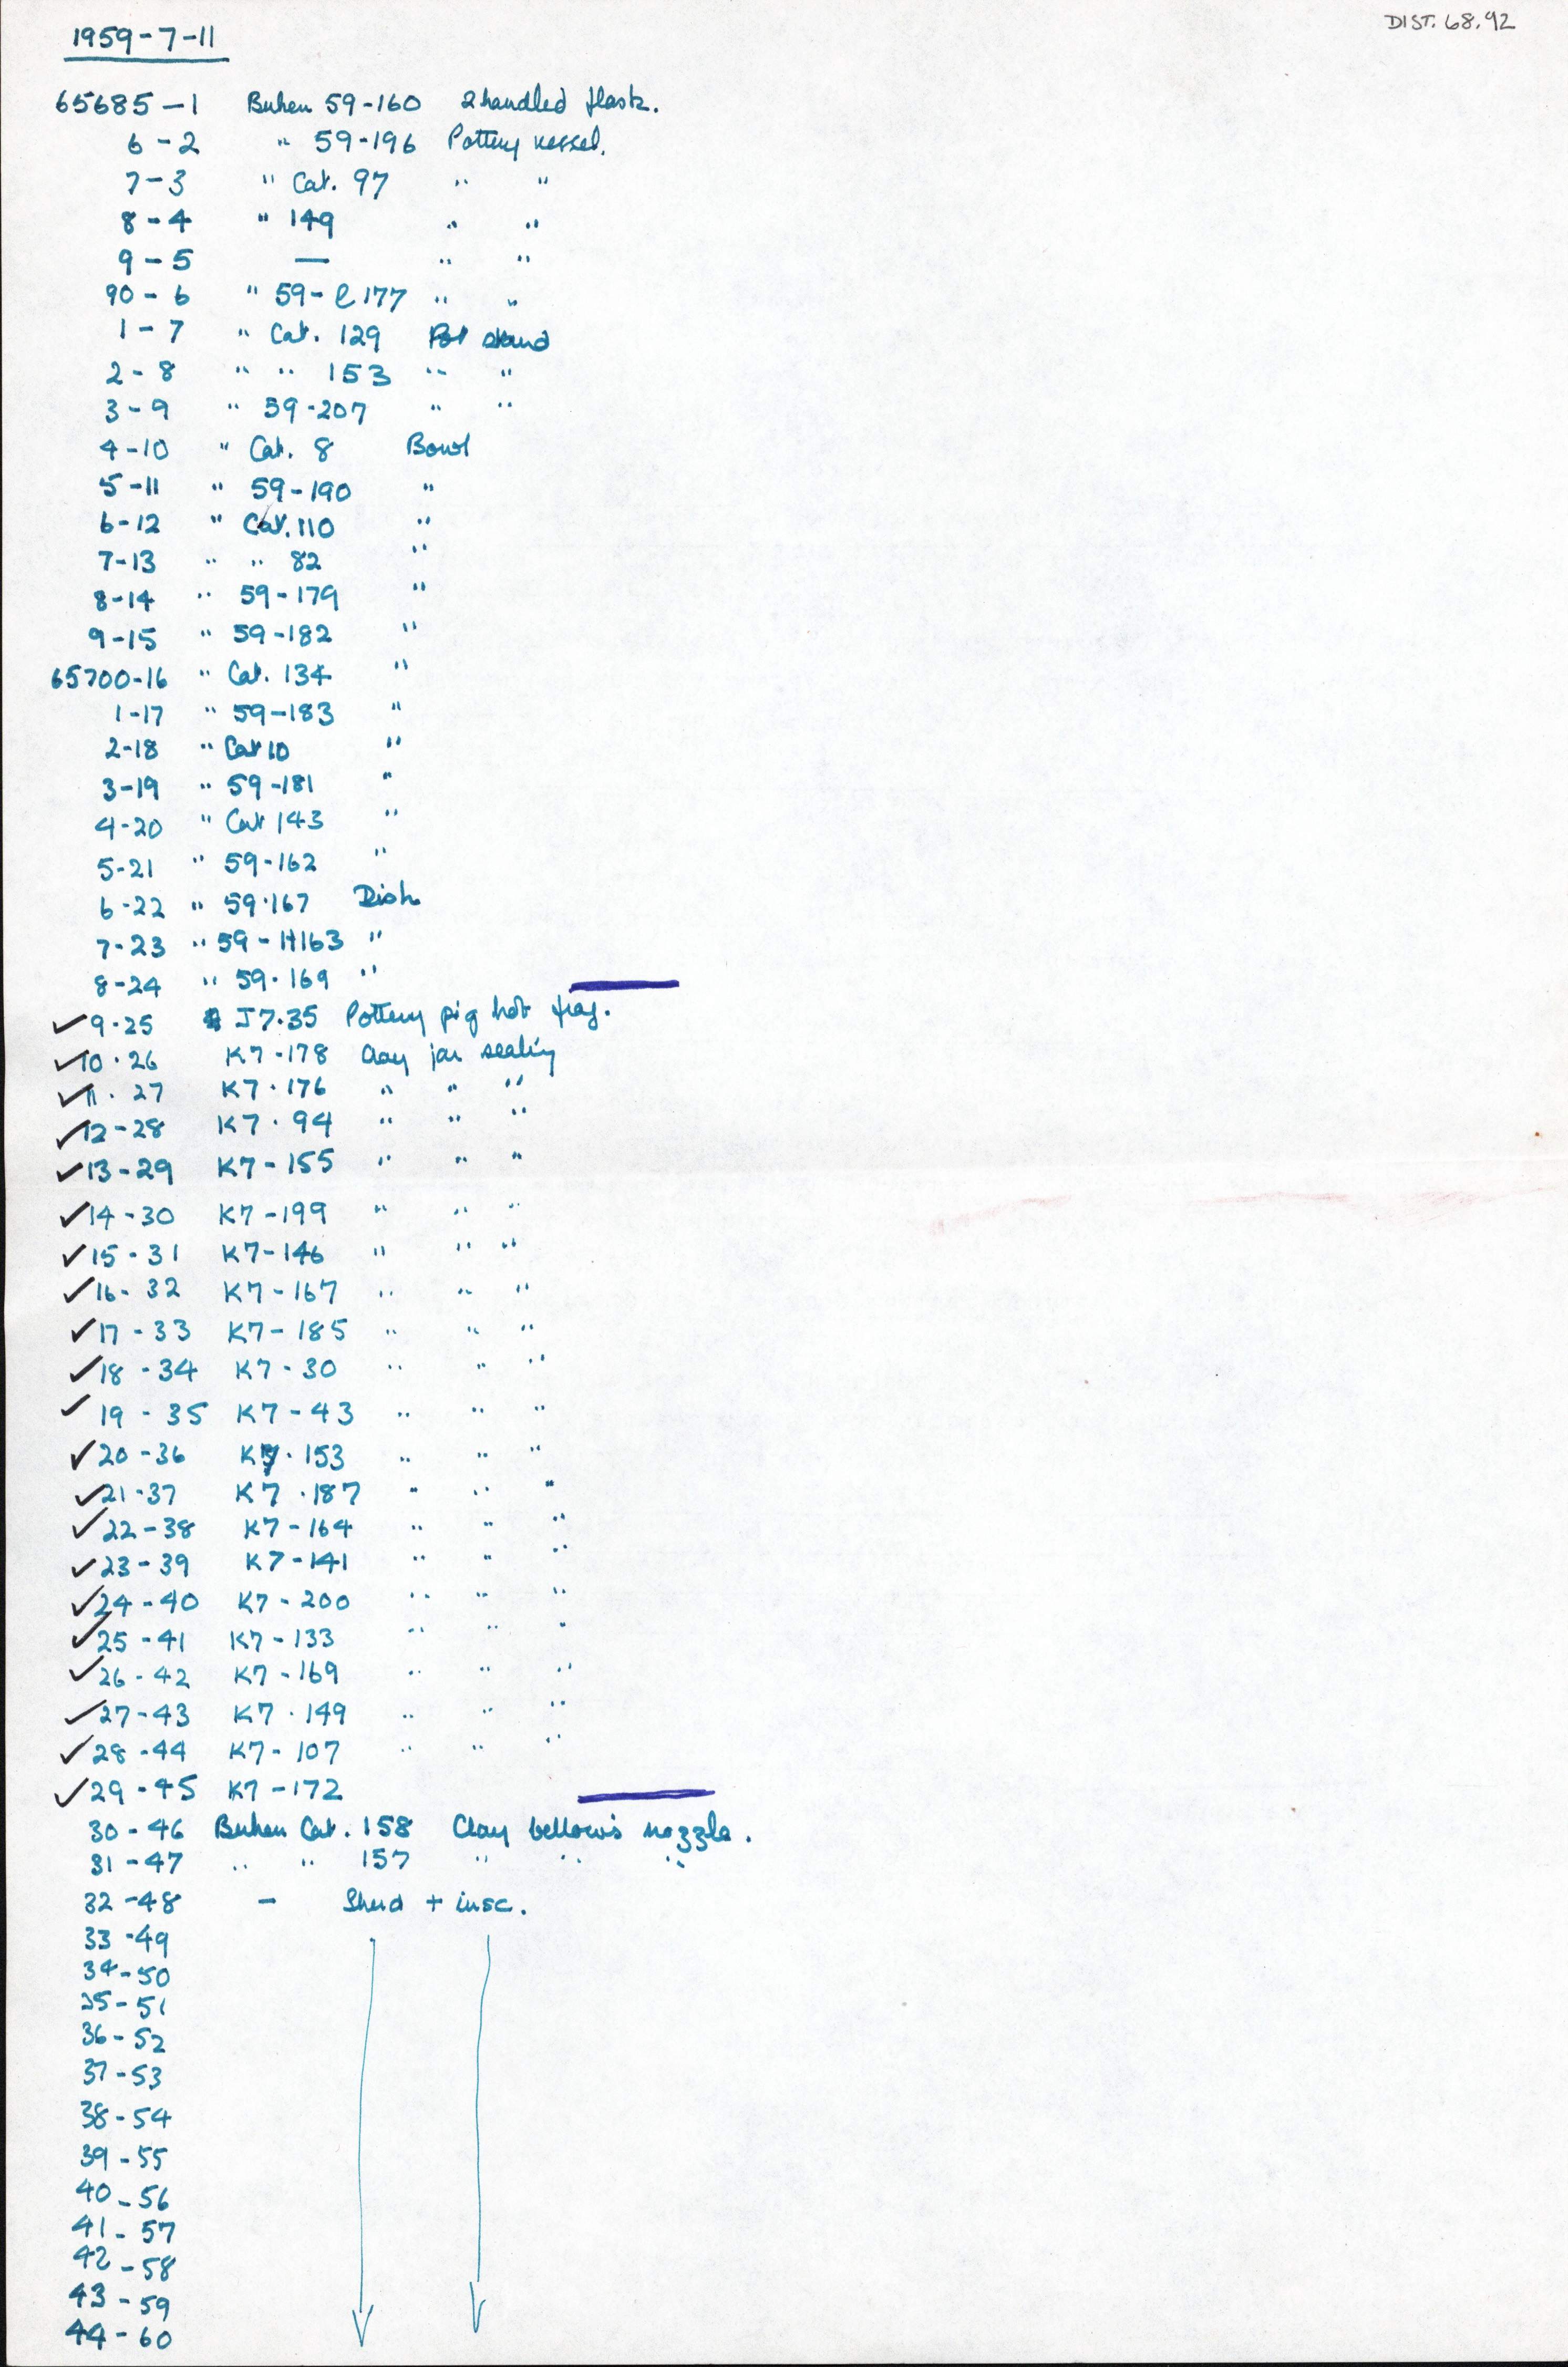 DIST. 68.92
1959-7-11
65685-1 Buhen 59-160 2 handled flask.
6-2 " 59-196 Pottery vessel.
7-3 " Cat. 97 " "
8-4 " 149 " "
9-5 — " "
90-6 " 59-C177 " "
1-7 " Cat. 129 Pot stand
2-8 " " 153 " "
3-9 " 59-207 " "
4-10 " Cat. 8 Bowl
5-11 " 59-190 "
6-12 " Cat. 110 "
7-13 " " 82 "
8-14 " 59-179 "
9-15 " 59-182 "
65700-16 " Cat. 134 "
1-17 " 59-183 "
2-18 " Cat 10 "
3-19 " 59-181 "
4-20 " Cat 143 "
5-21 " 59-162 "
6-22 " 59.167 Dish
7-23 " 59-H163 "
8-24 " 59.169 "
✓ 9.25 J7.35 Pottery pig hot frag.
✓ 10.26 K7-178 Clay jar sealing
✓ 11.27 K7.176 " " "
✓ 12-28 K7.94 " " "
✓ 13-29 K7-155 " " "
✓ 14-30 K7-199 " " "
✓ 15-31 K7-146 " " "
✓ 16-32 K7-167 " " "
✓ 17-33 K7-185 " " "
✓ 18-34 K7-30 " " "
✓ 19-35 K7-43 " " "
✓ 20-36 K7.153 " " "
✓ 21-37 K7.187 " " "
✓ 22-38 K7-164 " " "
✓ 23-39 K7-141 " " "
✓ 24-40 K7-200 " " "
✓ 25-41 K7-133 " " "
✓ 26-42 K7-169 " " "
✓ 27-43 K7.149 " " "
✓ 28-44 K7-107 " " "
✓ 29-45 K7-172
30-46 Buhen Cat. 158 Clay bellows nozzle.
31-47 " " 157 " " "
32-48 - Sherd + insc.
33-49
34-50
35-51
36-52
37-53
38-54
39-55
40-56
41-57
42-58
43-59
44-60